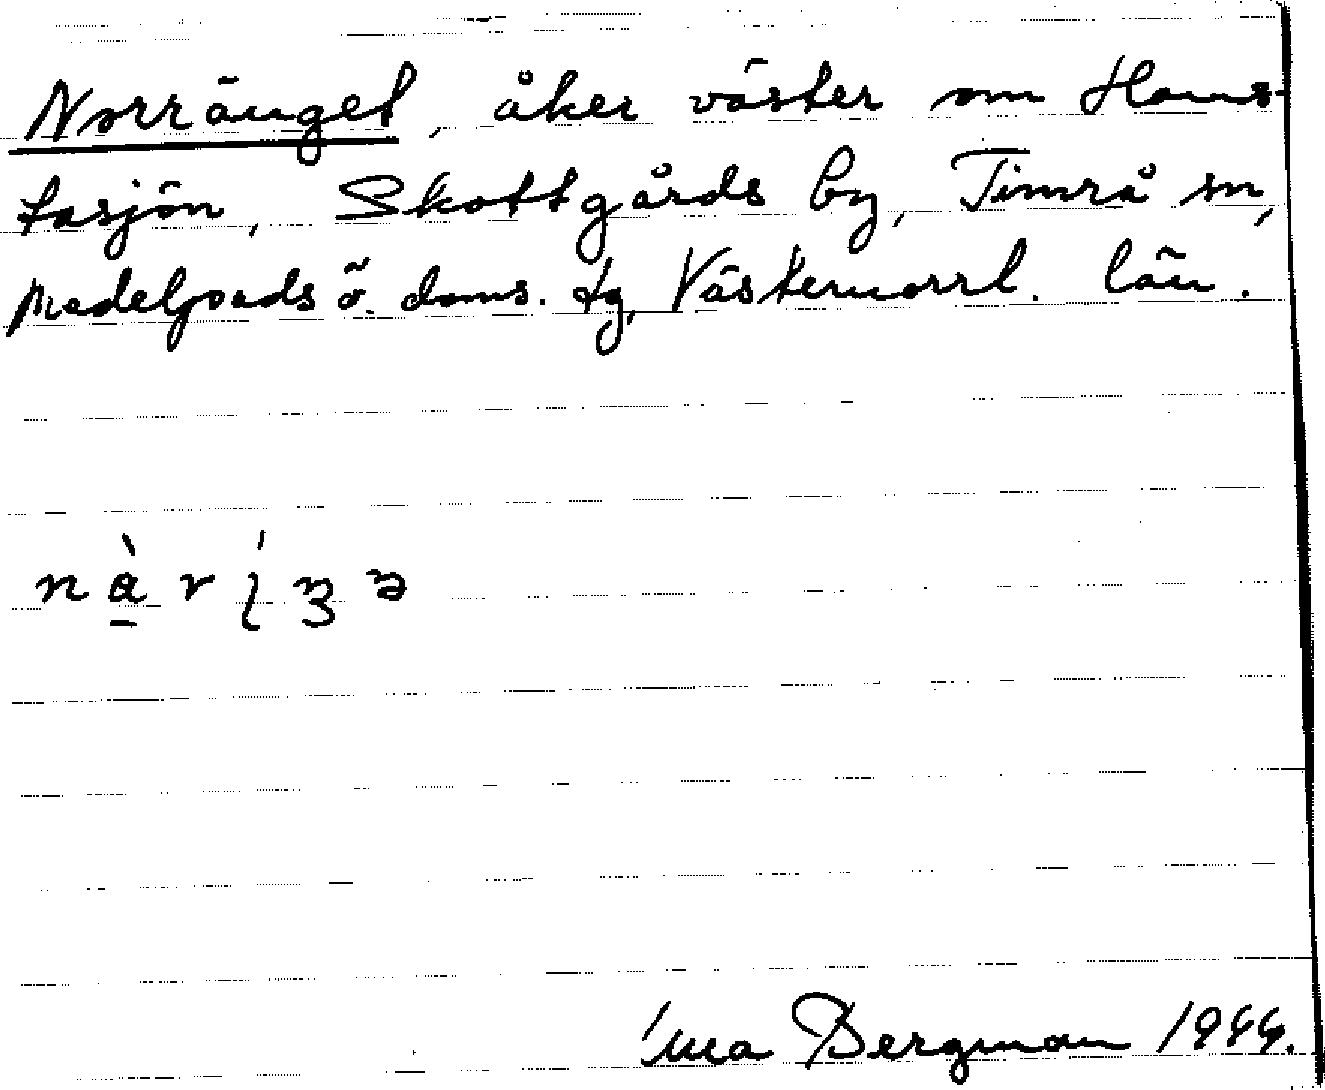 Norränget, åker väster om Hams-
tasjön, Skottgårds by, Timrå sn,
Medelpads ö. doms. tg, Västernorrl. län.
Bergman 1944.